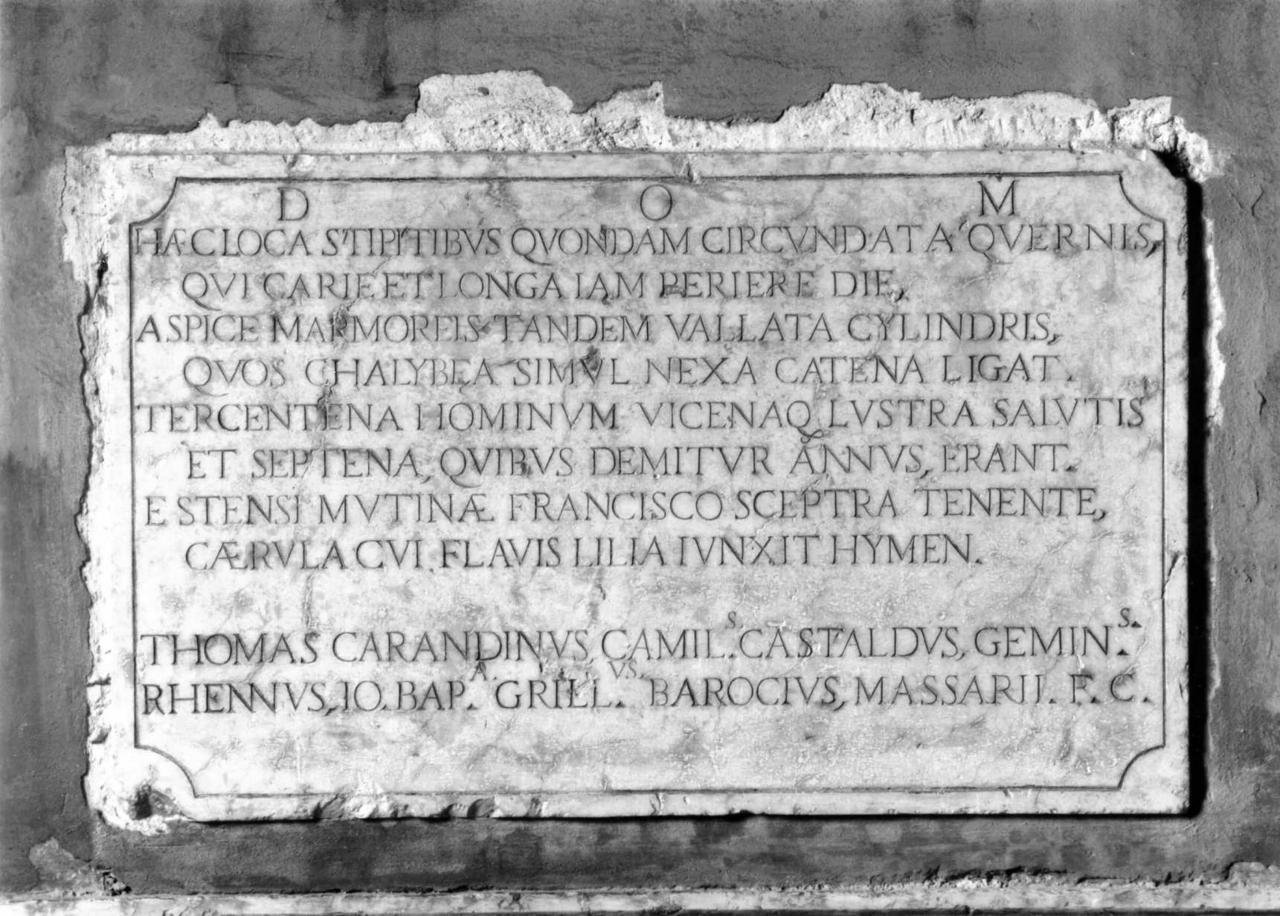 D O M
HÆC LOCA STIPITIBVS QVONDAM CIRCVNDATA QVERNIS,
QVI CARIE ET LONGA IAM PERIERE DIE,
ASPICE MARMOREIS TANDEM VALLATA CYLINDRIS,
QVOS CHALYBEA SIMVL NEXA CATENA LIGAT.
TERCENTENA HOMINVM VICENAQ, LVSTRA SALVTIS
ET SEPTENA, QVIBVS DEMITVR ANNVS, ERANT.
ESTENSI MVTINÆ FRANCISCO SCEPTRA TENENTE,
CÆRVLA CVI FLAVIS LILIA IVNXIT HYMEN.
THOMAS CARANDINVS, CAMIL.S CASTALDVS, GEMIN.S
RHENNVS, IO. BAP.A GRILL.VS BAROCIVS, MASSARII. F. C.